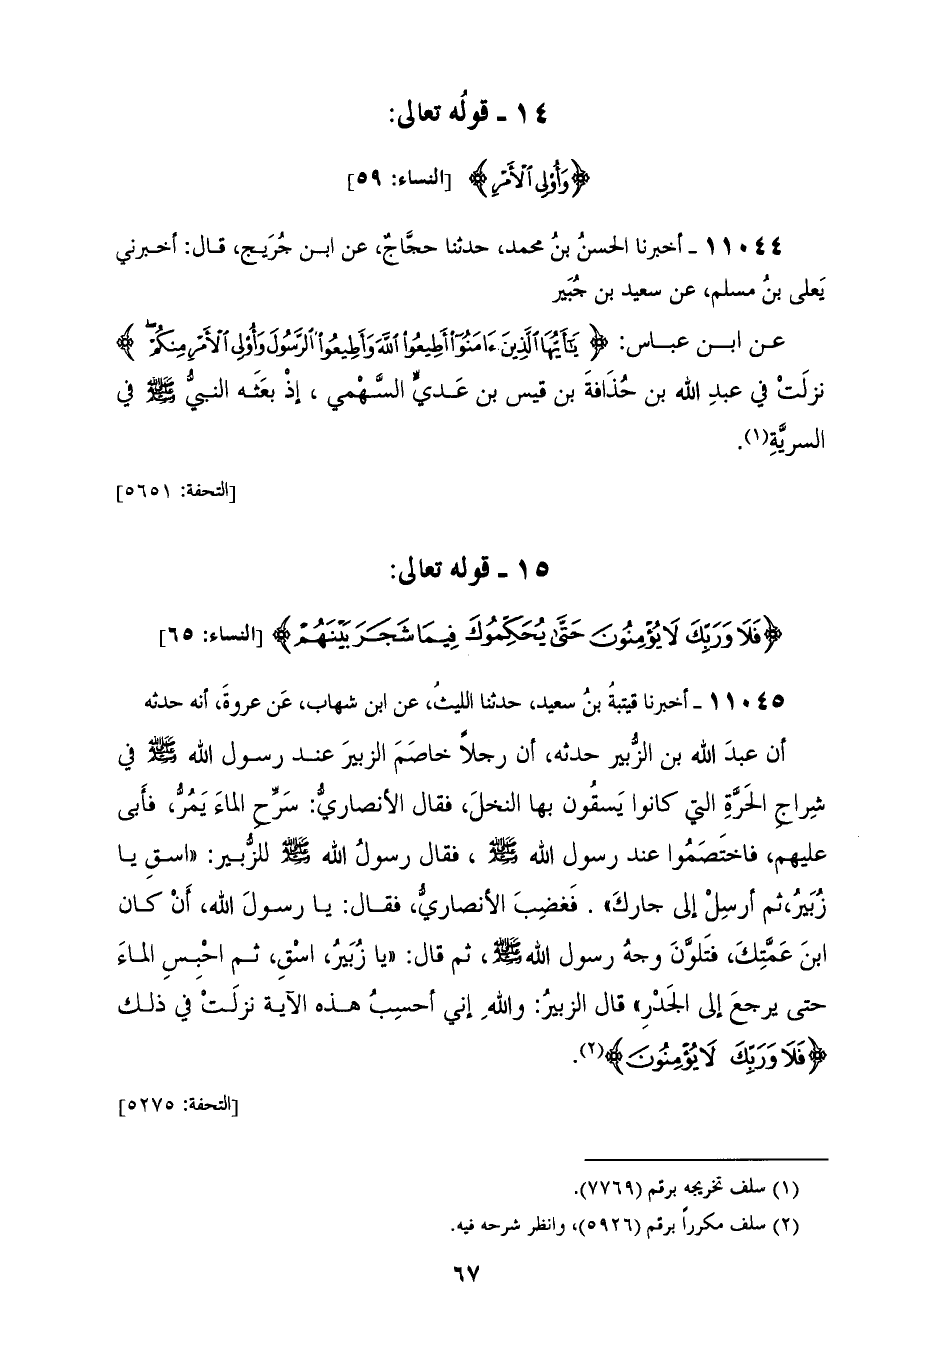 ١٤ ـ قولُه تعالى:
﴿وَأُوْلِى ٱلْأَمْرِ﴾ [النساء: ٥٩]
١١٠٤٤ ـ أخبرنا الحسنُ بنُ محمد، حدثنا حجَّاجٌ، عن ابن جُرَيج، قال: أخبرني
يَعلى بنُ مسلم، عن سعيد بن جُبَير
عن ابن عباس: ﴿يَٰٓأَيُّهَا ٱلَّذِينَ ءَامَنُوٓاْ أَطِيعُواْ ٱللَّهَ وَأَطِيعُواْ ٱلرَّسُولَ وَأُوْلِى ٱلْأَمْرِ مِنكُمْ ۖ﴾
نزلَتْ في عبدِ الله بن حُذَافةَ بن قيس بن عَديٍّ السَّهْمي ، إذْ بعَثَه النبيُّ ﷺ في
السريَّةِ(١).
[التحفة: ٥٦٥١]
١٥ ـ قوله تعالى:
﴿فَلَا وَرَبِّكَ لَا يُؤْمِنُونَ حَتَّىٰ يُحَكِّمُوكَ فِيمَا شَجَرَ بَيْنَهُمْ﴾ [النساء: ٦٥]
١١٠٤٥ ـ أخبرنا قتيبةُ بنُ سعيد، حدثنا الليثُ، عن ابن شهاب، عَن عروةَ، أنه حدثه
أن عبدَ الله بن الزُّبير حدثه، أن رجلاً خاصَمَ الزبيرَ عند رسول الله ﷺ في
شِراجِ الحَرَّةِ التي كانوا يَسقُون بها النخلَ، فقال الأنصاريُّ: سَرِّحِ الماءَ يَمُرُّ، فأَبى
عليهم، فاختَصَمُوا عند رسول الله ﷺ ، فقال رسولُ الله ﷺ للزُّبير: «اسقِ يا
زُبَيرُ،ثم أرسِلْ إلى جارك» . فغَضِبَ الأنصاريُّ، فقال: يا رسولَ الله، أَنْ كان
ابنَ عَمَّتِكَ، فتَلوَّنَ وجهُ رسول اللهﷺ، ثم قال: «يا زُبَيرُ، اسْقِ، ثم احْبِسِ الماءَ
حتى يرجعَ إلى الجَدْرِ» قال الزبيرُ: واللهِ إني أحسِبُ هذه الآيةَ نزلَتْ في ذلك
﴿فَلَا وَرَبِّكَ لَا يُؤْمِنُونَ﴾(٢).
[التحفة: ٥٢٧٥]
(١) سلف تخريجه برقم (٧٧٦٩).
(٢) سلف مكرراً برقم (٥٩٢٦)، وانظر شرحه فيه.
٦٧